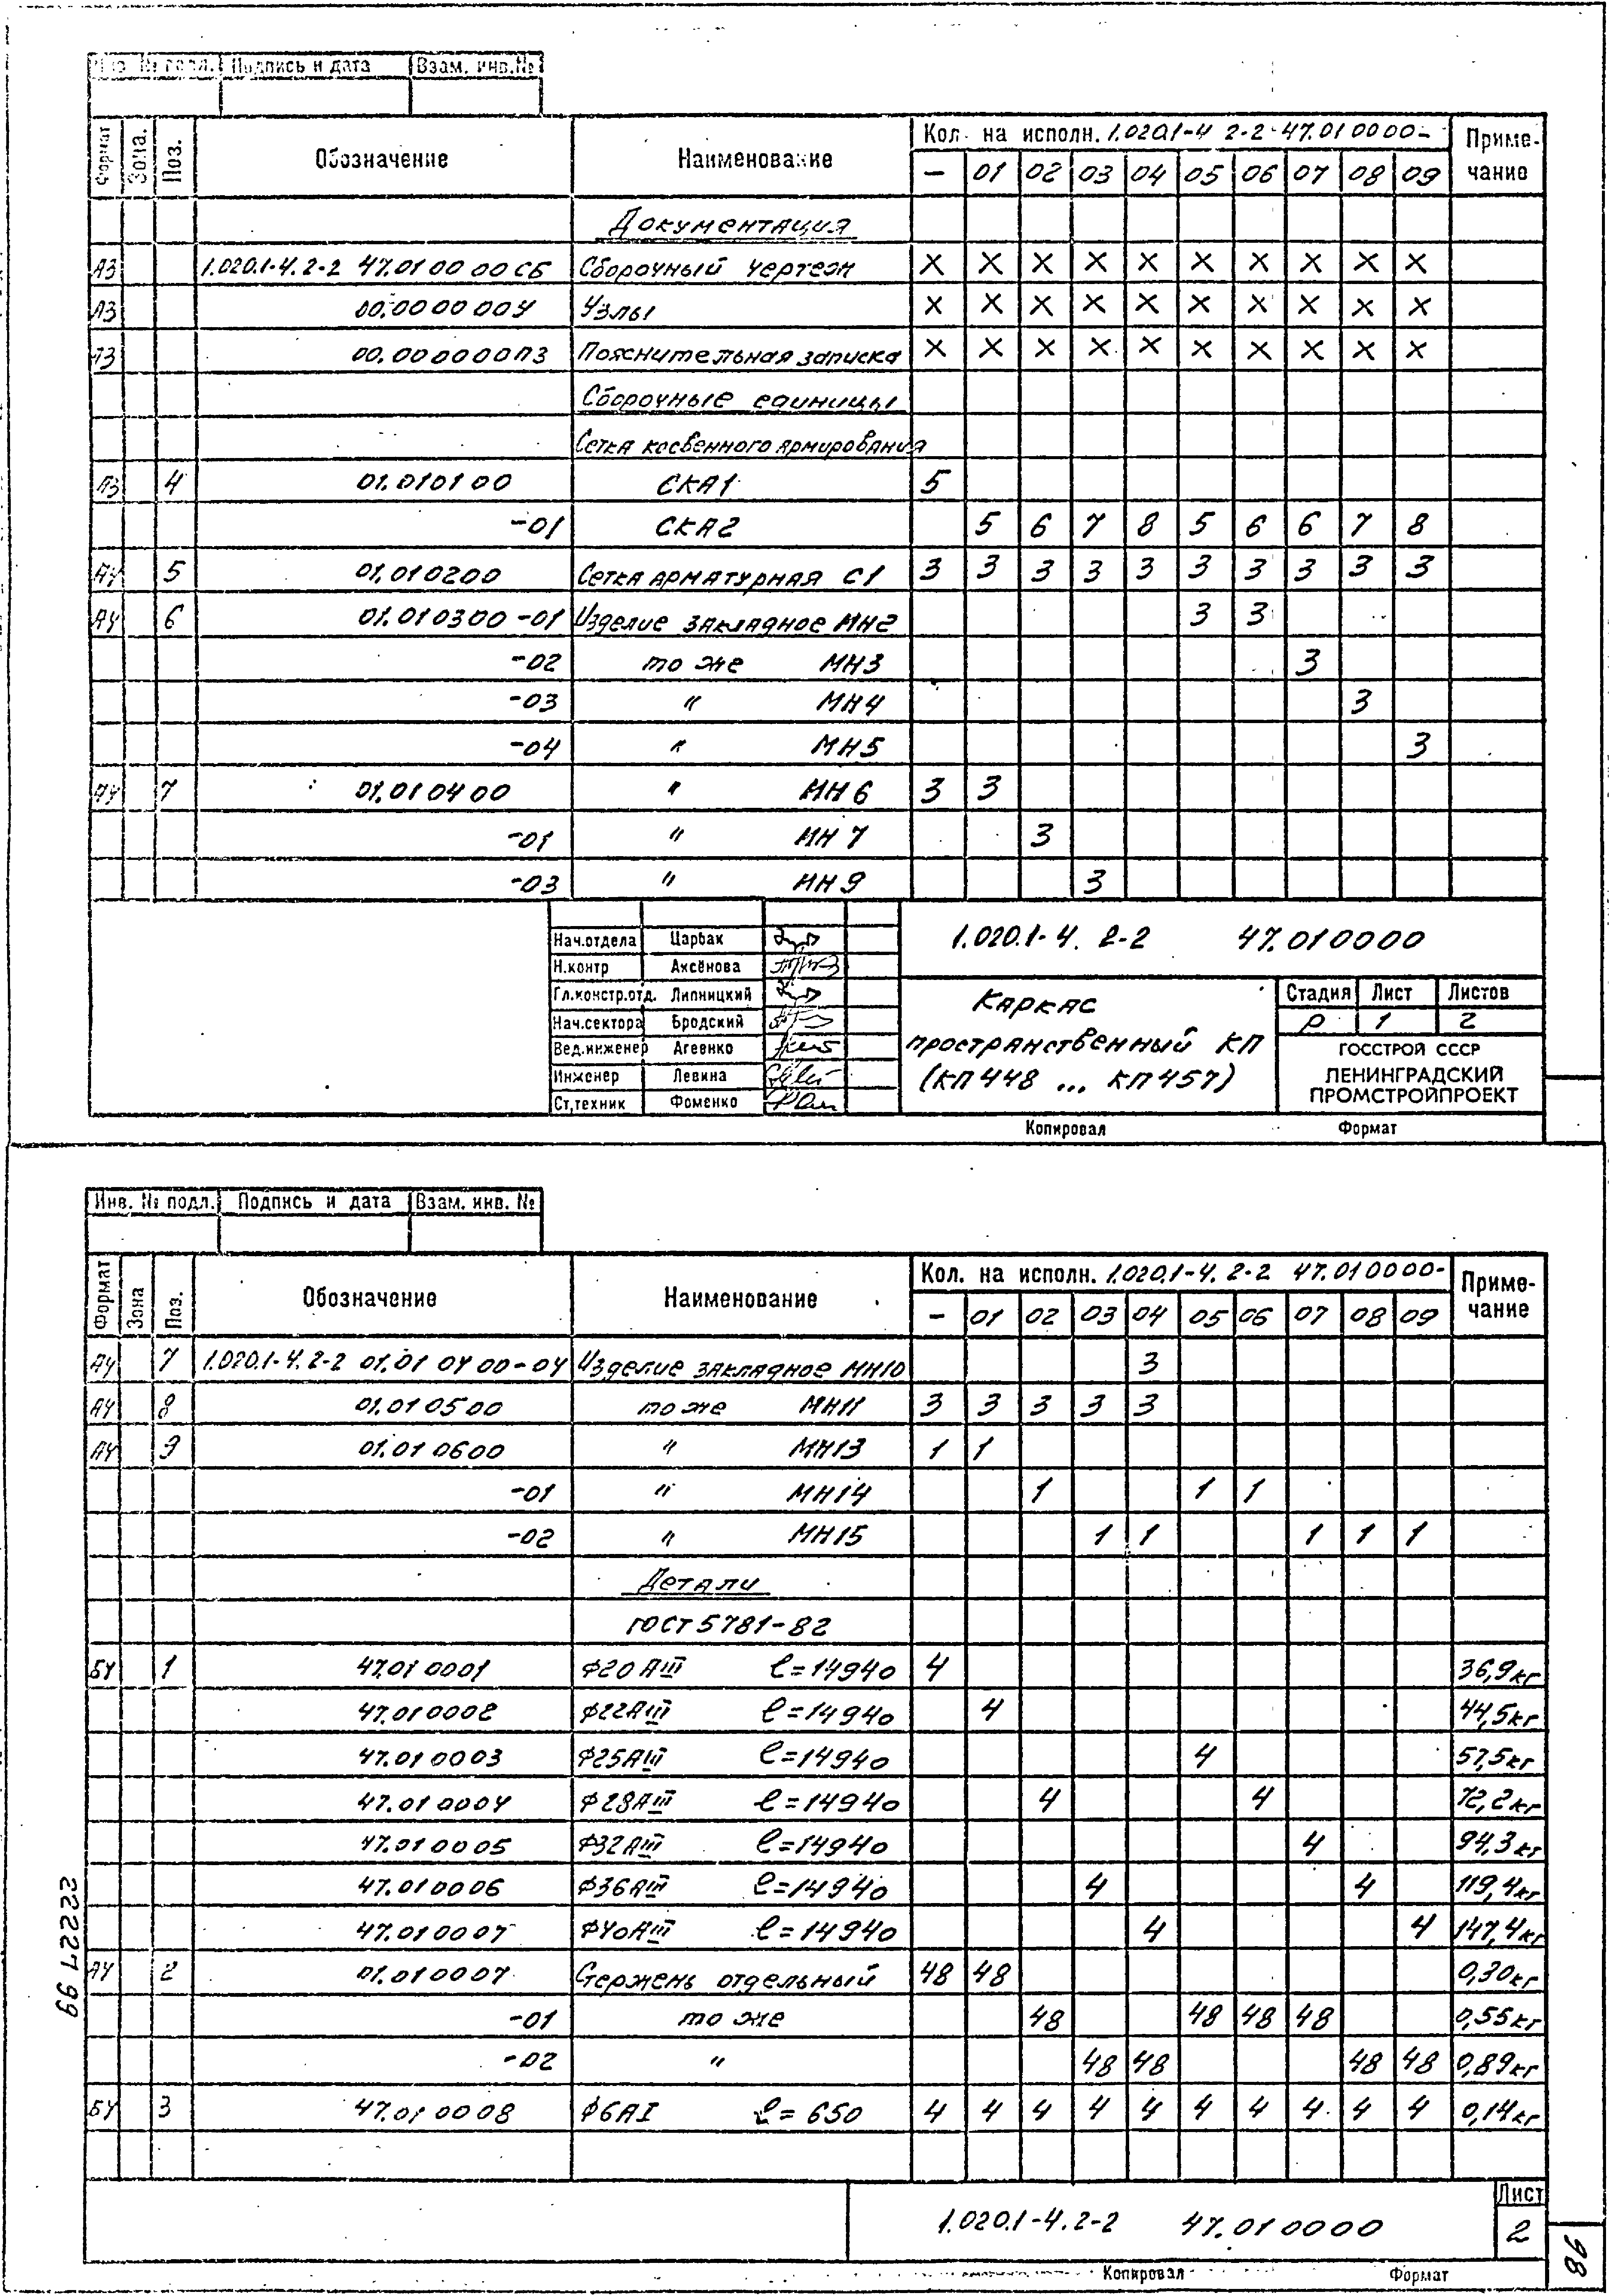 Инв. № подл. Подпись и дата Взам. инв.№
Формат Зона. Поз. Обозначение Наименование Кол. на исполн. 1.020.1-4 2-2 47.01 0000- Приме-чание
— 01 02 03 04 05 06 07 08 09
Документация
А3 1.020.1-4. 2-2 47.01 00 00 СБ Сборочный чертеж × × × × × × × × × ×
А3 00.00 00 00У Узлы × × × × × × × × × ×
А3 00.00 00 00ПЗ Пояснительная записка × × × × × × × × × ×
Сборочные единицы
Сетка косвенного армирования
А3 4 01.01 01 00 СКА1 5
-01 СКА2 5 6 7 8 5 6 6 7 8
А4 5 01.01 02 00 Сетка арматурная С1 3 3 3 3 3 3 3 3 3 3
А4 6 01.01 03 00 -01 Изделие закладное МН2 3 3
-02 то же МН3 3
-03 " МН4 3
-04 " МН5 3
А4 7 01.01 04 00 " МН6 3 3
-01 " МН 7 3
-03 " МН 9 3
Нач.отдела Царбак
Н.контр Аксёнова
Гл.констр.отд. Липницкий
Нач.сектора Бродский
Вед.инженер Агеенко
Инженер Левина
Ст.техник Фоменко
1.020.1-4. 2-2 47.01 0000
Каркас
пространственный КП
(КП 448 ... КП 457)
Стадия Лист Листов
Р 1 2
ГОССТРОЙ СССР
ЛЕНИНГРАДСКИЙ
ПРОМСТРОЙПРОЕКТ
Копировал Формат
Инв. № подл. Подпись и дата Взам. инв. №
Формат Зона Поз. Обозначение Наименование Кол. на исполн. 1.020.1-4. 2-2 47.01 0000- Приме-чание
— 01 02 03 04 05 06 07 08 09
А4 7 1.020.1-4. 2-2 01.01 04 00-04 Изделие закладное МН10 3
А4 8 01.01 05 00 то же МН11 3 3 3 3 3
А4 9 01.01 06 00 " МН13 1 1
-01 " МН14 1 1 1
-02 " МН15 1 1 1 1 1
Детали
ГОСТ 5781-82
БЧ 1 47.01 0001 Ф20 АIII ℓ=14940 4 36,9кг
47.01 0002 Ф22АIII ℓ=14940 4 44,5кг
47.01 0003 Ф25АIII ℓ=14940 4 57,5кг
47.01 0004 Ф28АIII ℓ=14940 4 4 72,2кг
47.01 0005 Ф32АIII ℓ=14940 4 94,3кг
47.01 0006 Ф36АIII ℓ=14940 4 4 119,4кг
47.01 0007 Ф40АIII ℓ=14940 4 4 147,4кг
А4 2 01.01 0007 Стержень отдельный 48 48 0,30кг
-01 то же 48 48 48 48 0,55кг
-02 " 48 48 48 48 0,89кг
БЧ 3 47.01 0008 Ф6АI ℓ= 650 4 4 4 4 4 4 4 4 4 4 0,14кг
22271 99
1.020.1-4. 2-2 47.01 0000
Лист
2
98
Копировал Формат